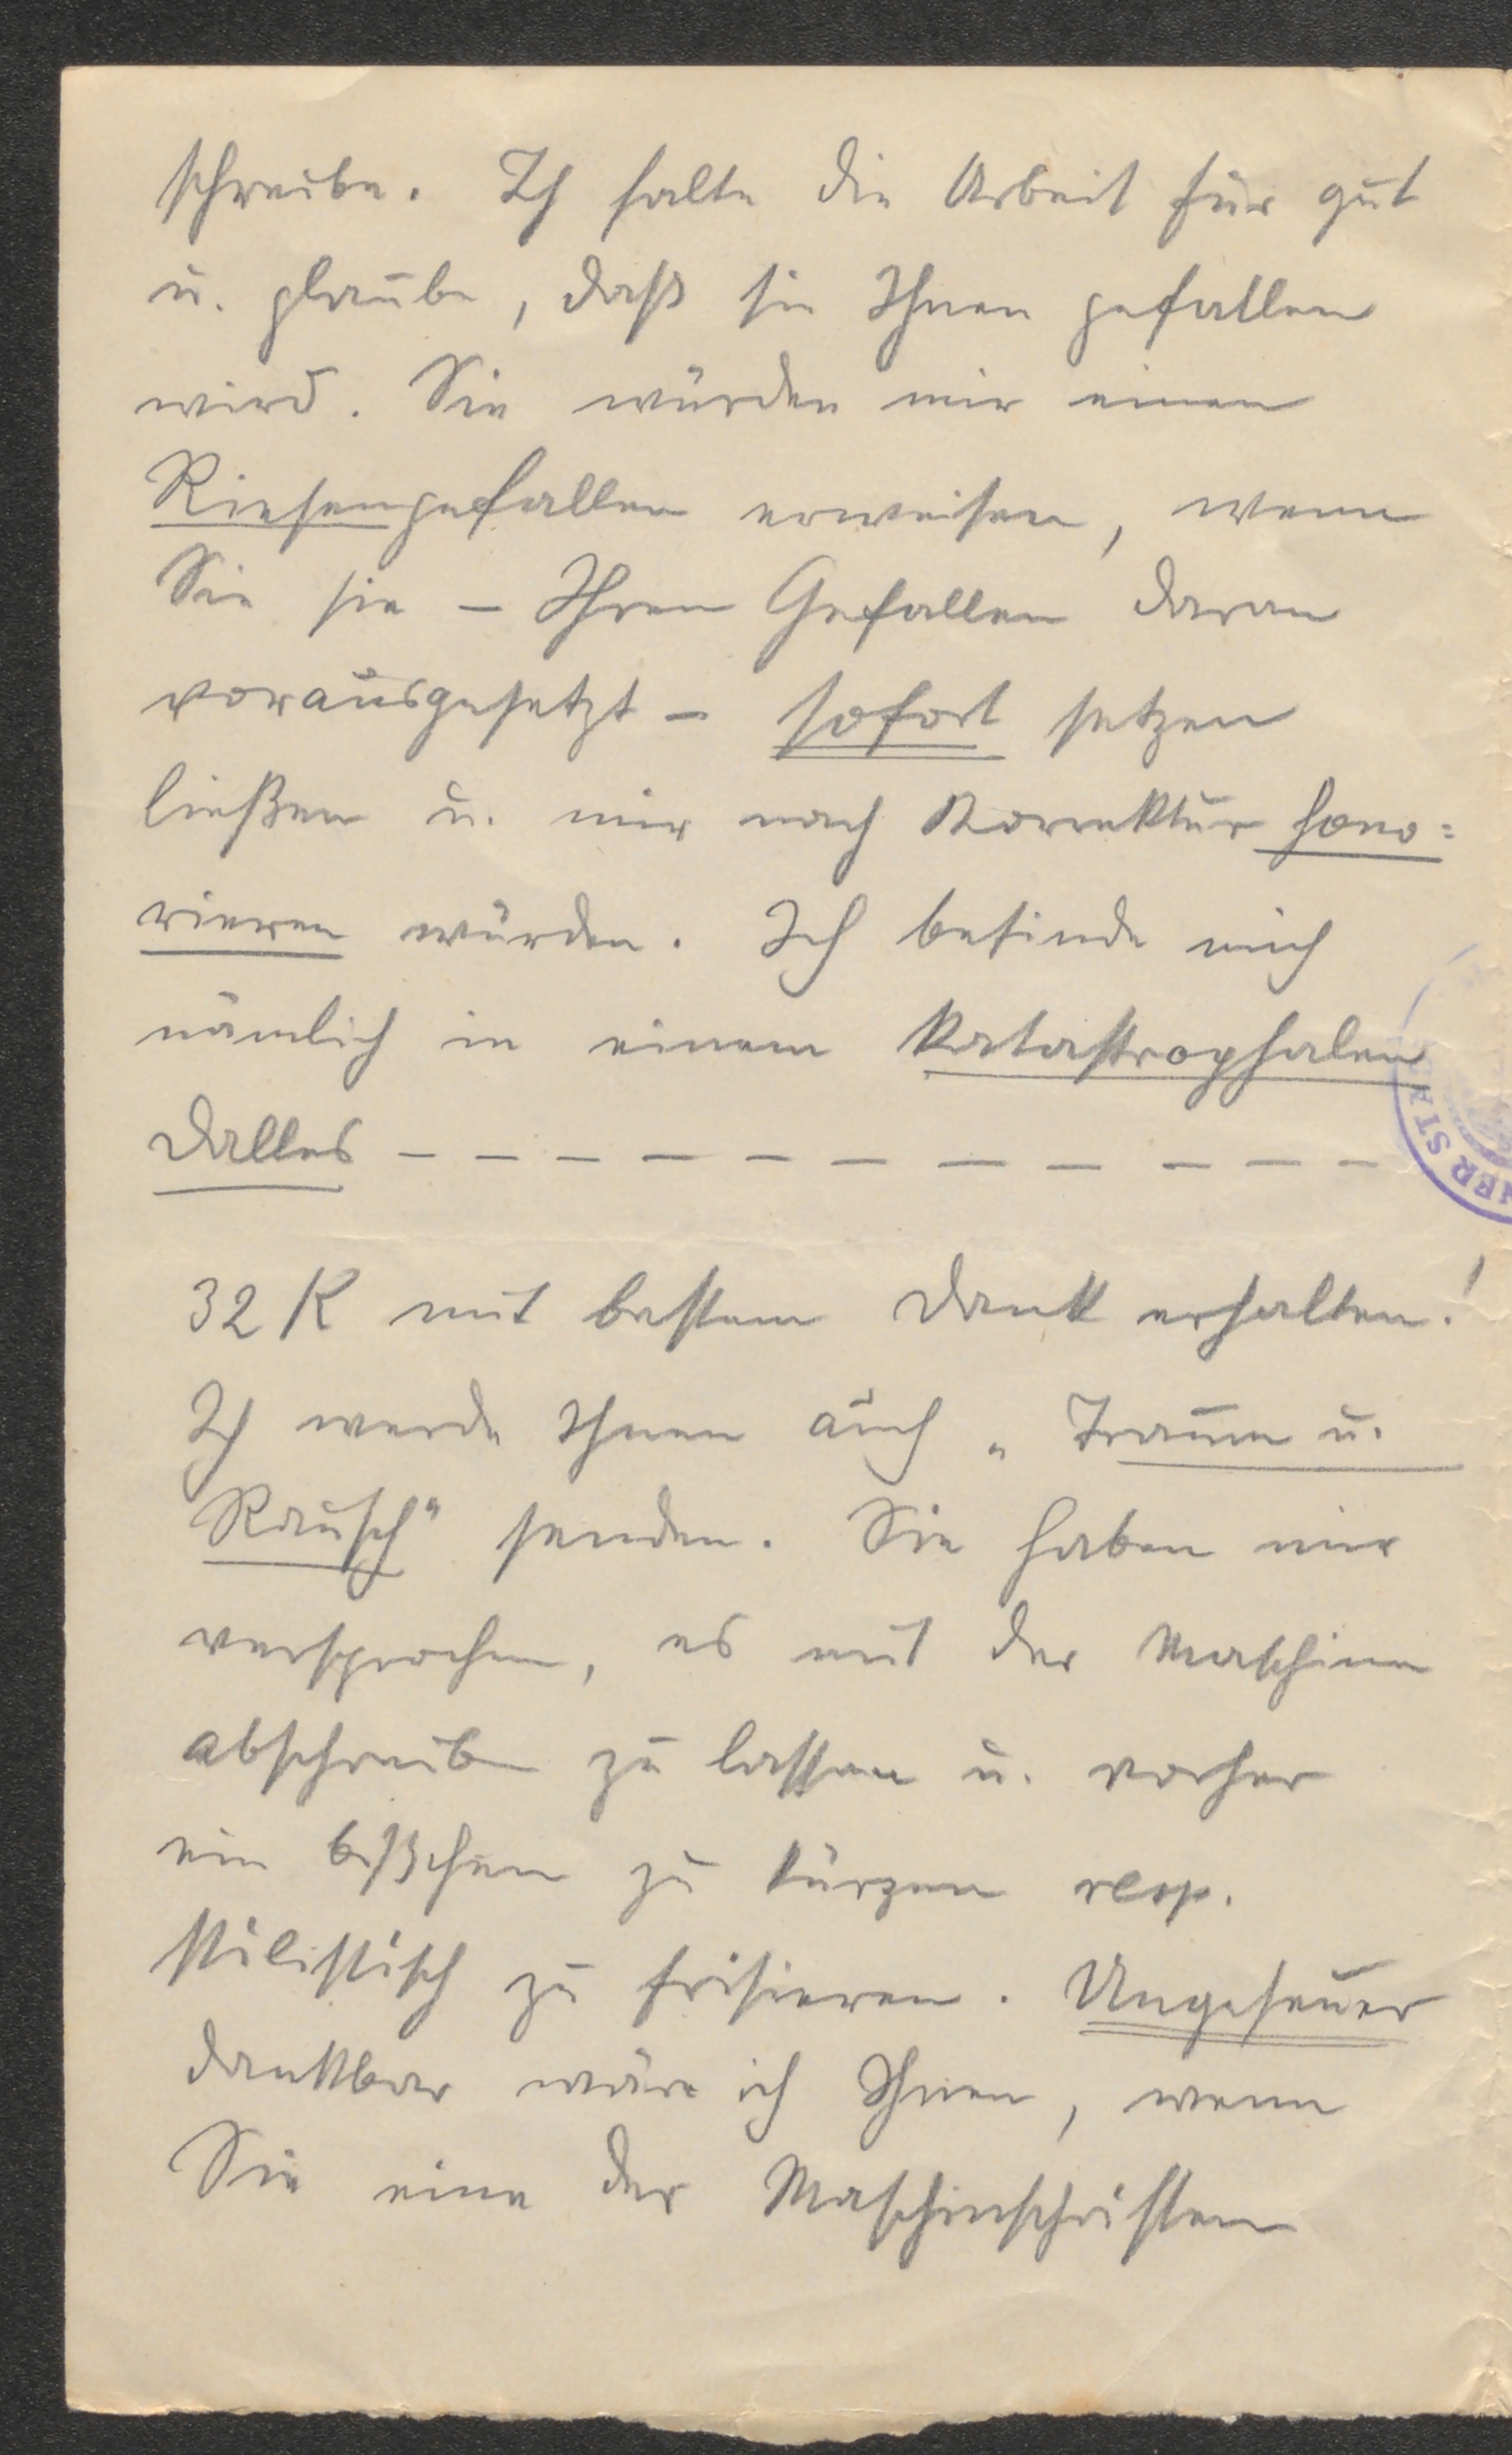 schreibe. Ich halte die Arbeit für gut
u. glaube, daß sie Ihnen gefallen
wird. Sie würden mir einen
Riesengefallen erweisen, wenn
Sie sie – Ihren Gefallen daran
vorausgesetzt – sofort setzen
ließen u. mir nach Korrektur hono=
rieren würden. Ich befinde mich
nämlich in einem katastrophalen
Dalles – – – – – – – – – – –
32 K mit bestem Dank erhalten!
Ich werde Ihnen auch „Traum u.
Rausch" senden. Sie haben mir
versprochen, es mit der Maschine
abschreiben zu lassen u. vorher
ein bißchen zu kürzen resp.
stilistisch zu frisieren. Ungeheuer
dankbar wäre ich Ihnen, wenn
Sie eine der Maschinschriften